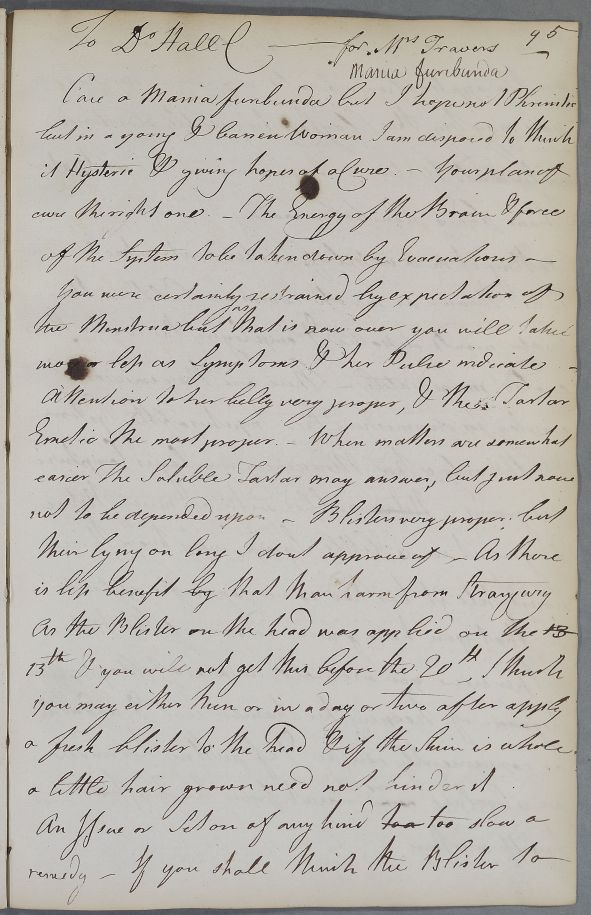 To Dr Hall — for Mrs Travers 95
Mania furibunda
Case a Mania furibunda but I hope not Phrenitic
but in a young & barren Woman I am disposed to think
it Hysteric & giving hopes of a Cure. – Your plan of
cure the right one. – The Energy of the Brain & force
of the System to be taken down by Evacuations –
You were certainly restrained by expectation of
the Menstrua but as that is now over you will take
more or less as Symptoms & her Pulse indicate –
Attention to her belly very proper, & the Tartar
Emetic the most proper. – When matters are somewhat
easier The Soluble Tartar may answer, but just now
not to be depended upon – Blisters very proper but
their lying on long I dont approve of – As there
is less benefit by that than harm from Strangury
As the Blister on the head was applied on the 13
13th & you will not get this before the 20th, I think
you may either then or in a day or two after apply
a fresh blister to the head & if the skin is whole
a little hair grown need not hinder it
An Issue or Seton of any kind too too slow a
remedy – If you shall think the Blister to